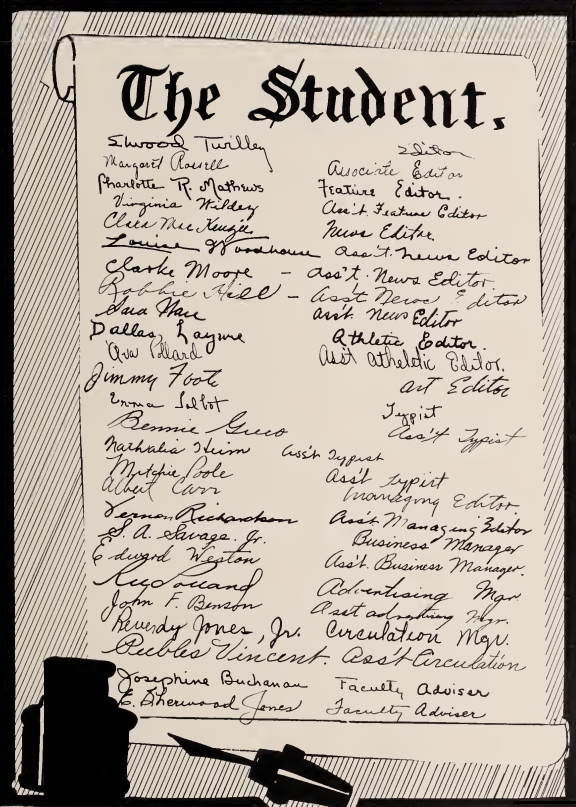 The Student.
Elwood Twilley Editor
Margaret Rossell Associate Editor
Charlotte R. Mathews Feature Editor.
Virginia Wildey Ass't Feature Editor
Clara MacKenzie News Editor.
Louise Woodhouse Ass't. News Editor
Clarke Moore - Ass't. News Editor.
Robbie Hill - Ass't News Editor
Sara Ass't News Editor
Dallas Layne Athletic Editor.
Ava Pollard Ass't atheletic Editor.
Jimmy Foote Art Editor
Emma Typist
Bennie Ass't Typist
Nathalia Ass't Typist
Poole Ass't typist
Albert Carr Managing Editor.
Vernon Richardson Ass't Managing Editor
S. A. Savage, Jr. Business Manager
Edward Weston Ass't. Business Manager.
Advertising Mgr
John F. Benson Asst advertising Mgr.
Reverdy Jones, Jr. Circulation Mgr.
Peebles Vincent. Ass't Circulation
Josephine Buchanan Faculty Adviser
E. Sherwood Jones Faculty Adviser